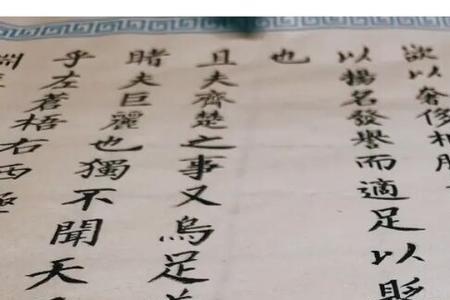 欲以奢侈相
以揚名發譽而適足以
也
且夫齊楚之事又烏足
睹夫巨麗也獨不聞天
乎左蒼梧右西極